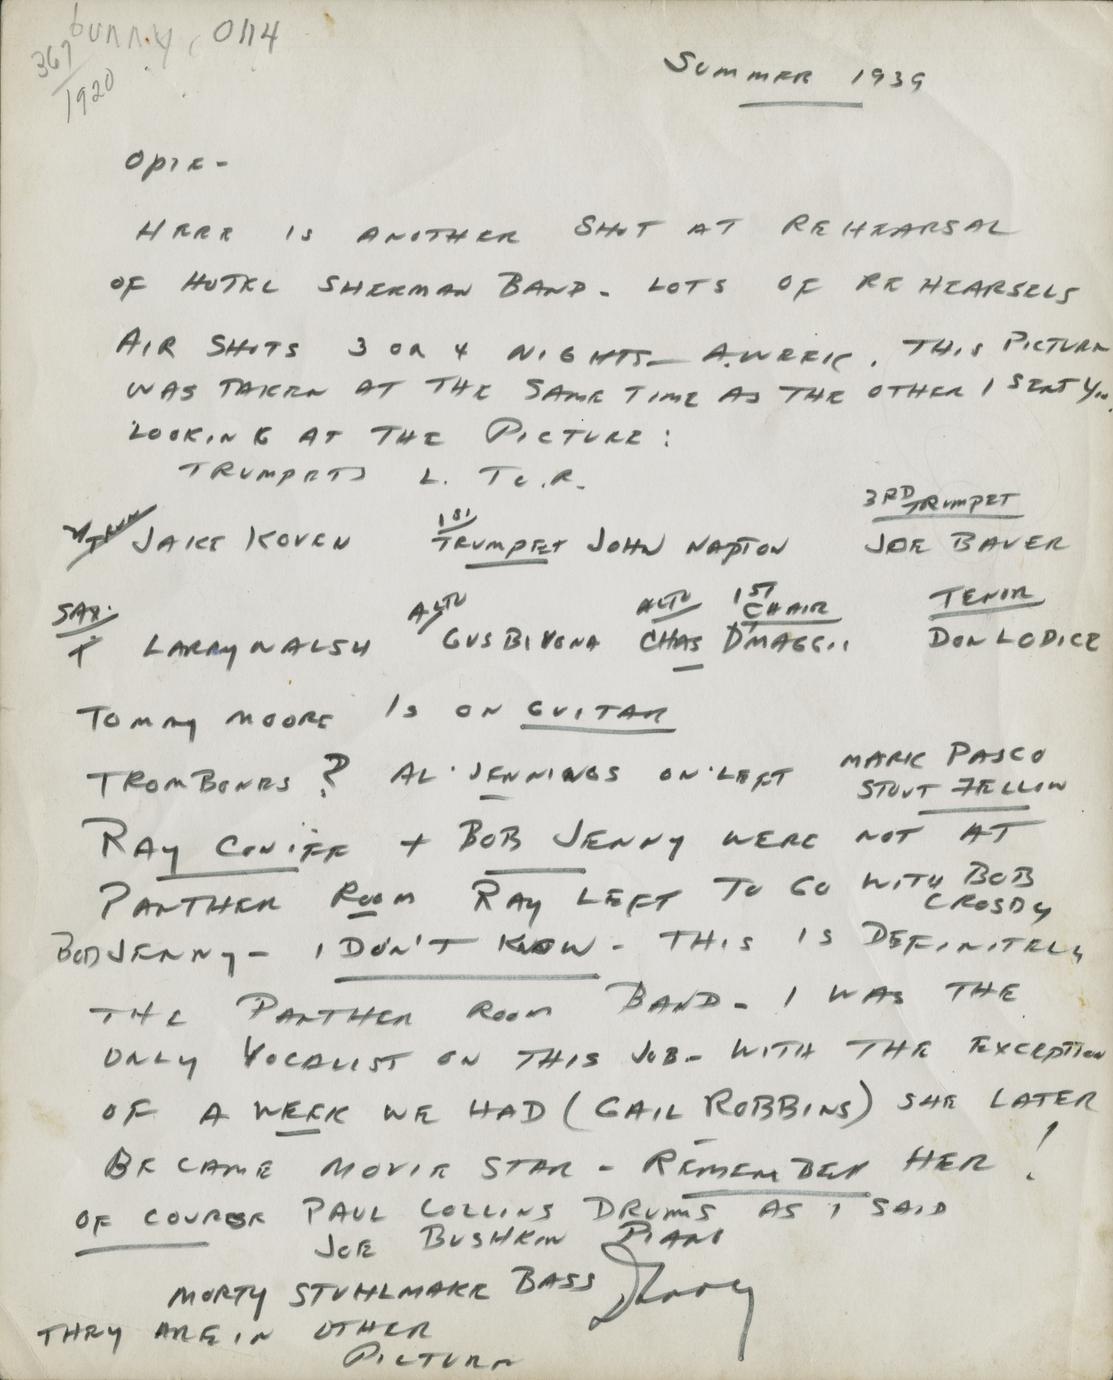 bunny, 0114
367
1920
SUMMER 1939
OPIE -
HERE IS ANOTHER SHOT AT REHEARSAL
OF HOTEL SHERMAN BAND - LOTS OF REHEARSELS
AIR SHOTS 3 OR 4 NIGHTS - A WEEK. THIS PICTURE
WAS TAKEN AT THE SAME TIME AS THE OTHER I SENT YOU.
LOOKING AT THE PICTURE:
TRUMPETS L. TO R.
JAKE KOVEN 1ST TRUMPET JOHN NAPTON 3RD TRUMPET JOE BAUER
SAX: LARRY WALSH ALTO GUS BIVONA ALTO 1ST CHAIR CHAS D'MAGGII TENOR DON LODICE
TOMMY MOORE IS ON GUITAR
TROMBONES? AL JENNINGS ON LEFT MARK PASCO
STOUT FELLOW
RAY CONIFF + BOB JENNY WERE NOT AT
PANTHER ROOM RAY LEFT TO GO WITH BOB
CROSBY
BOB JENNY - I DON'T KNOW - THIS IS DEFINITELY
THE PANTHER ROOM BAND - I WAS THE
ONLY VOCALIST ON THIS JOB - WITH THE EXCEPTION
OF A WEEK WE HAD (GAIL ROBBINS) SHE LATER
BECAME MOVIE STAR - REMEMBER HER!
OF COURSE PAUL COLLINS DRUMS AS I SAID
JOE BUSHKIN PIANO
MORTY STUHLMAKE BASS
THEY ARE IN OTHER
PICTURE